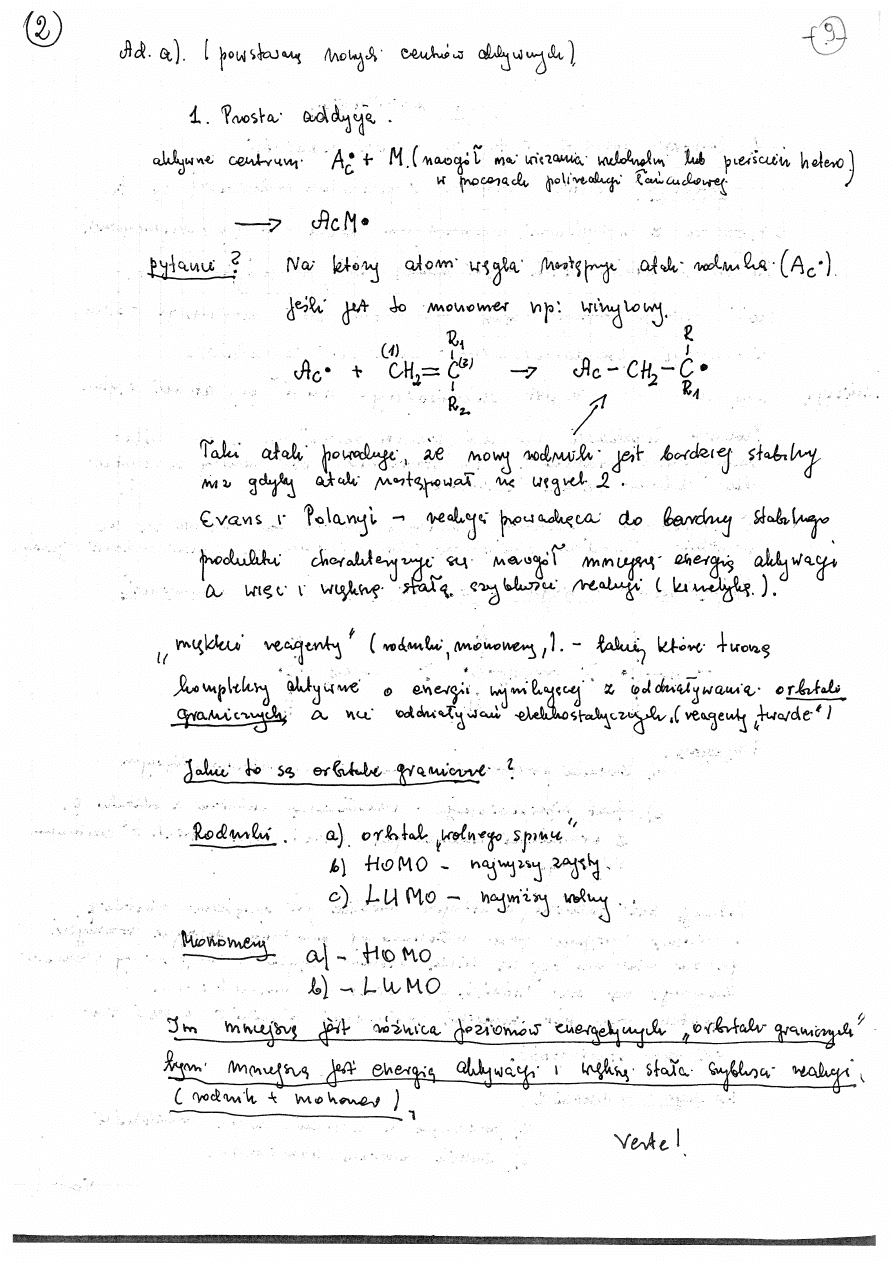 (2)
-9-
Ad. a). (powstawanie nowych centrów aktywnych)
1. Prosta addycja.
aktywne centrum Ac• + M. (naogół ma wiązania wielokrotne lub pierścień hetero)
w procesach polireakcji łańcuchowej
→ AcM•
pytanie? Na który atom węgla następuje atak rodnika (Ac•)
jeśli jest to monomer np: winylowy.
R1 R
(1) (2)
Ac• + CH2 = C → Ac – CH2 – C •
R2 R1
Taki atak powoduje, że nowy rodnik jest bardziej stabilny
niż gdyby atak następował na węgiel 2.
Evans i Polanyi – reakcja prowadząca do bardziej stabilnego
produktu charakteryzuje się naogół mniejszą energią aktywacji
a więc i większą stałą szybkości reakcji (kinetykę).
„miękkie reagenty" (rodniki, monomery,). – takie, które tworzą
kompleksy aktywne o energii wynikającej z oddziaływania orbitali
granicznych, a nie oddziaływań elektrostatycznych. (reagenty „twarde")
Jakie to są orbitale graniczne?
Rodniki. a) orbital „wolnego spinu"
b) HOMO – najwyższy zajęty.
c) LUMO – najniższy wolny.
Monomery a) – HOMO
b) – LUMO
Im mniejsza jest różnica poziomów energetycznych „orbitali granicznych"
tym mniejsza jest energia aktywacji i większa stała szybkości reakcji.
(rodnik + monomer),
Verte!